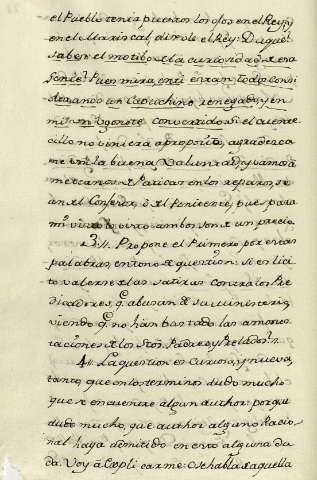 el Pueblo tenia puestos los ojos en el Rey, y
en el Mariscal, dixole el Rey: Duque
saber el motibo de la curiosidad de esa
gente? Pues mira, en ti estan todos consi
derando un Capuchino renegado, y en
mi un Ugonote convertido. Si el cuente
cillo no viniera a proposito, agradezca
me Vm. la buena Voluntad, y vamos a
mecanicas Platicas en los reparos
en el Confesor, o el Penitente, pues para
mi uno, lo otro, ambos son de un precio
3. Propone el Primero por estas
palabras, en tono de question: Si es lici
to valerse de las satiras contra los Pre
dicadores, q. abusan de su ministerio,
viendo q. no han bastado las amones
taciones de los Stos. Padres, y Prelados?
4. La question es curiosa, y nueva,
tanto, que en los terminos dudo mucho
que se encuentre algun author: porque
dudo mucho, que author alguno Racio
nal haya admitido en esto alguna du
da. Voy à Explicarme: O se habla de aquella